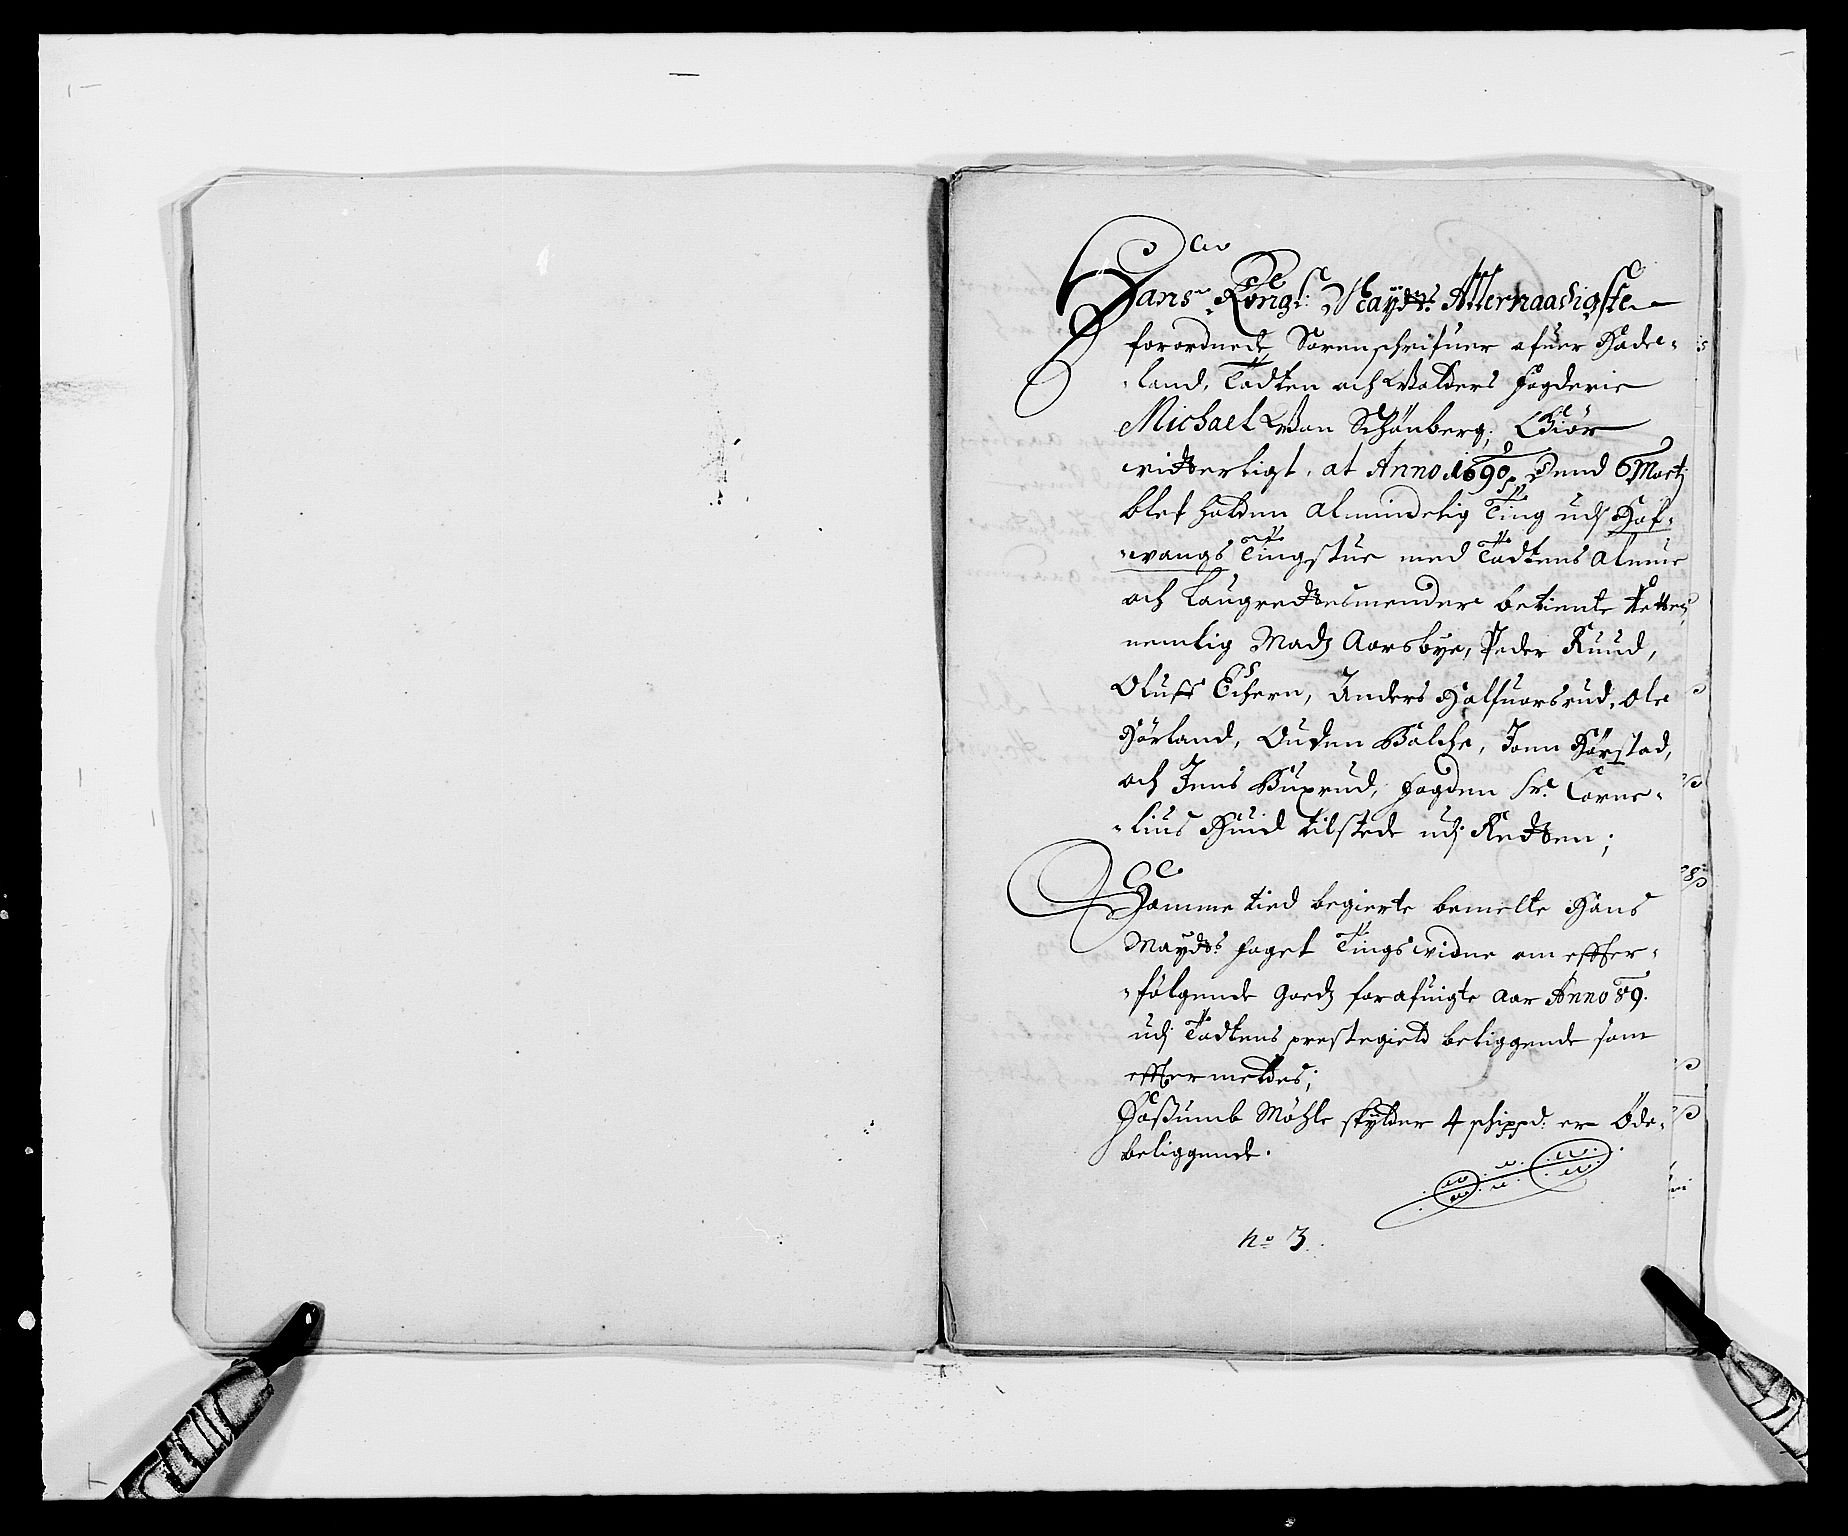 Hans Kongl: Mayts: Allernaadigste
forordnede Sorenschrifuer ofuer Hade-
-land, Todten och Walders fogderie
Michael Won Schönberg, Giör
witterligt, at Anno 1690, dend 6 Martj
blef holden Almindelig Ting udj Haf-
-wangs Tingstue med Todtens Almue
och Laugrettesmender betiente Retten,
nemlig Madz Aarsbye, Peder Ruud,
Oluff Echern, Anders Halfuorsrud, Ole
Hörland, Ouden Balche, Joen Hörstad,
och Jens Buxrud, fogden Sr. Corne-
-lius Hund tilstede udj Retten;
Samme tied begierte bemelte Hans
Mayts: foget Tingswidne om effter-
-följende goedz forafuigte Aar Anno 89.
udj Todtens prestegield beliggende som
effter meldes;
Hoßumb Möhle skylder 4 schippd: er Öde-
beliggende.
No 3.